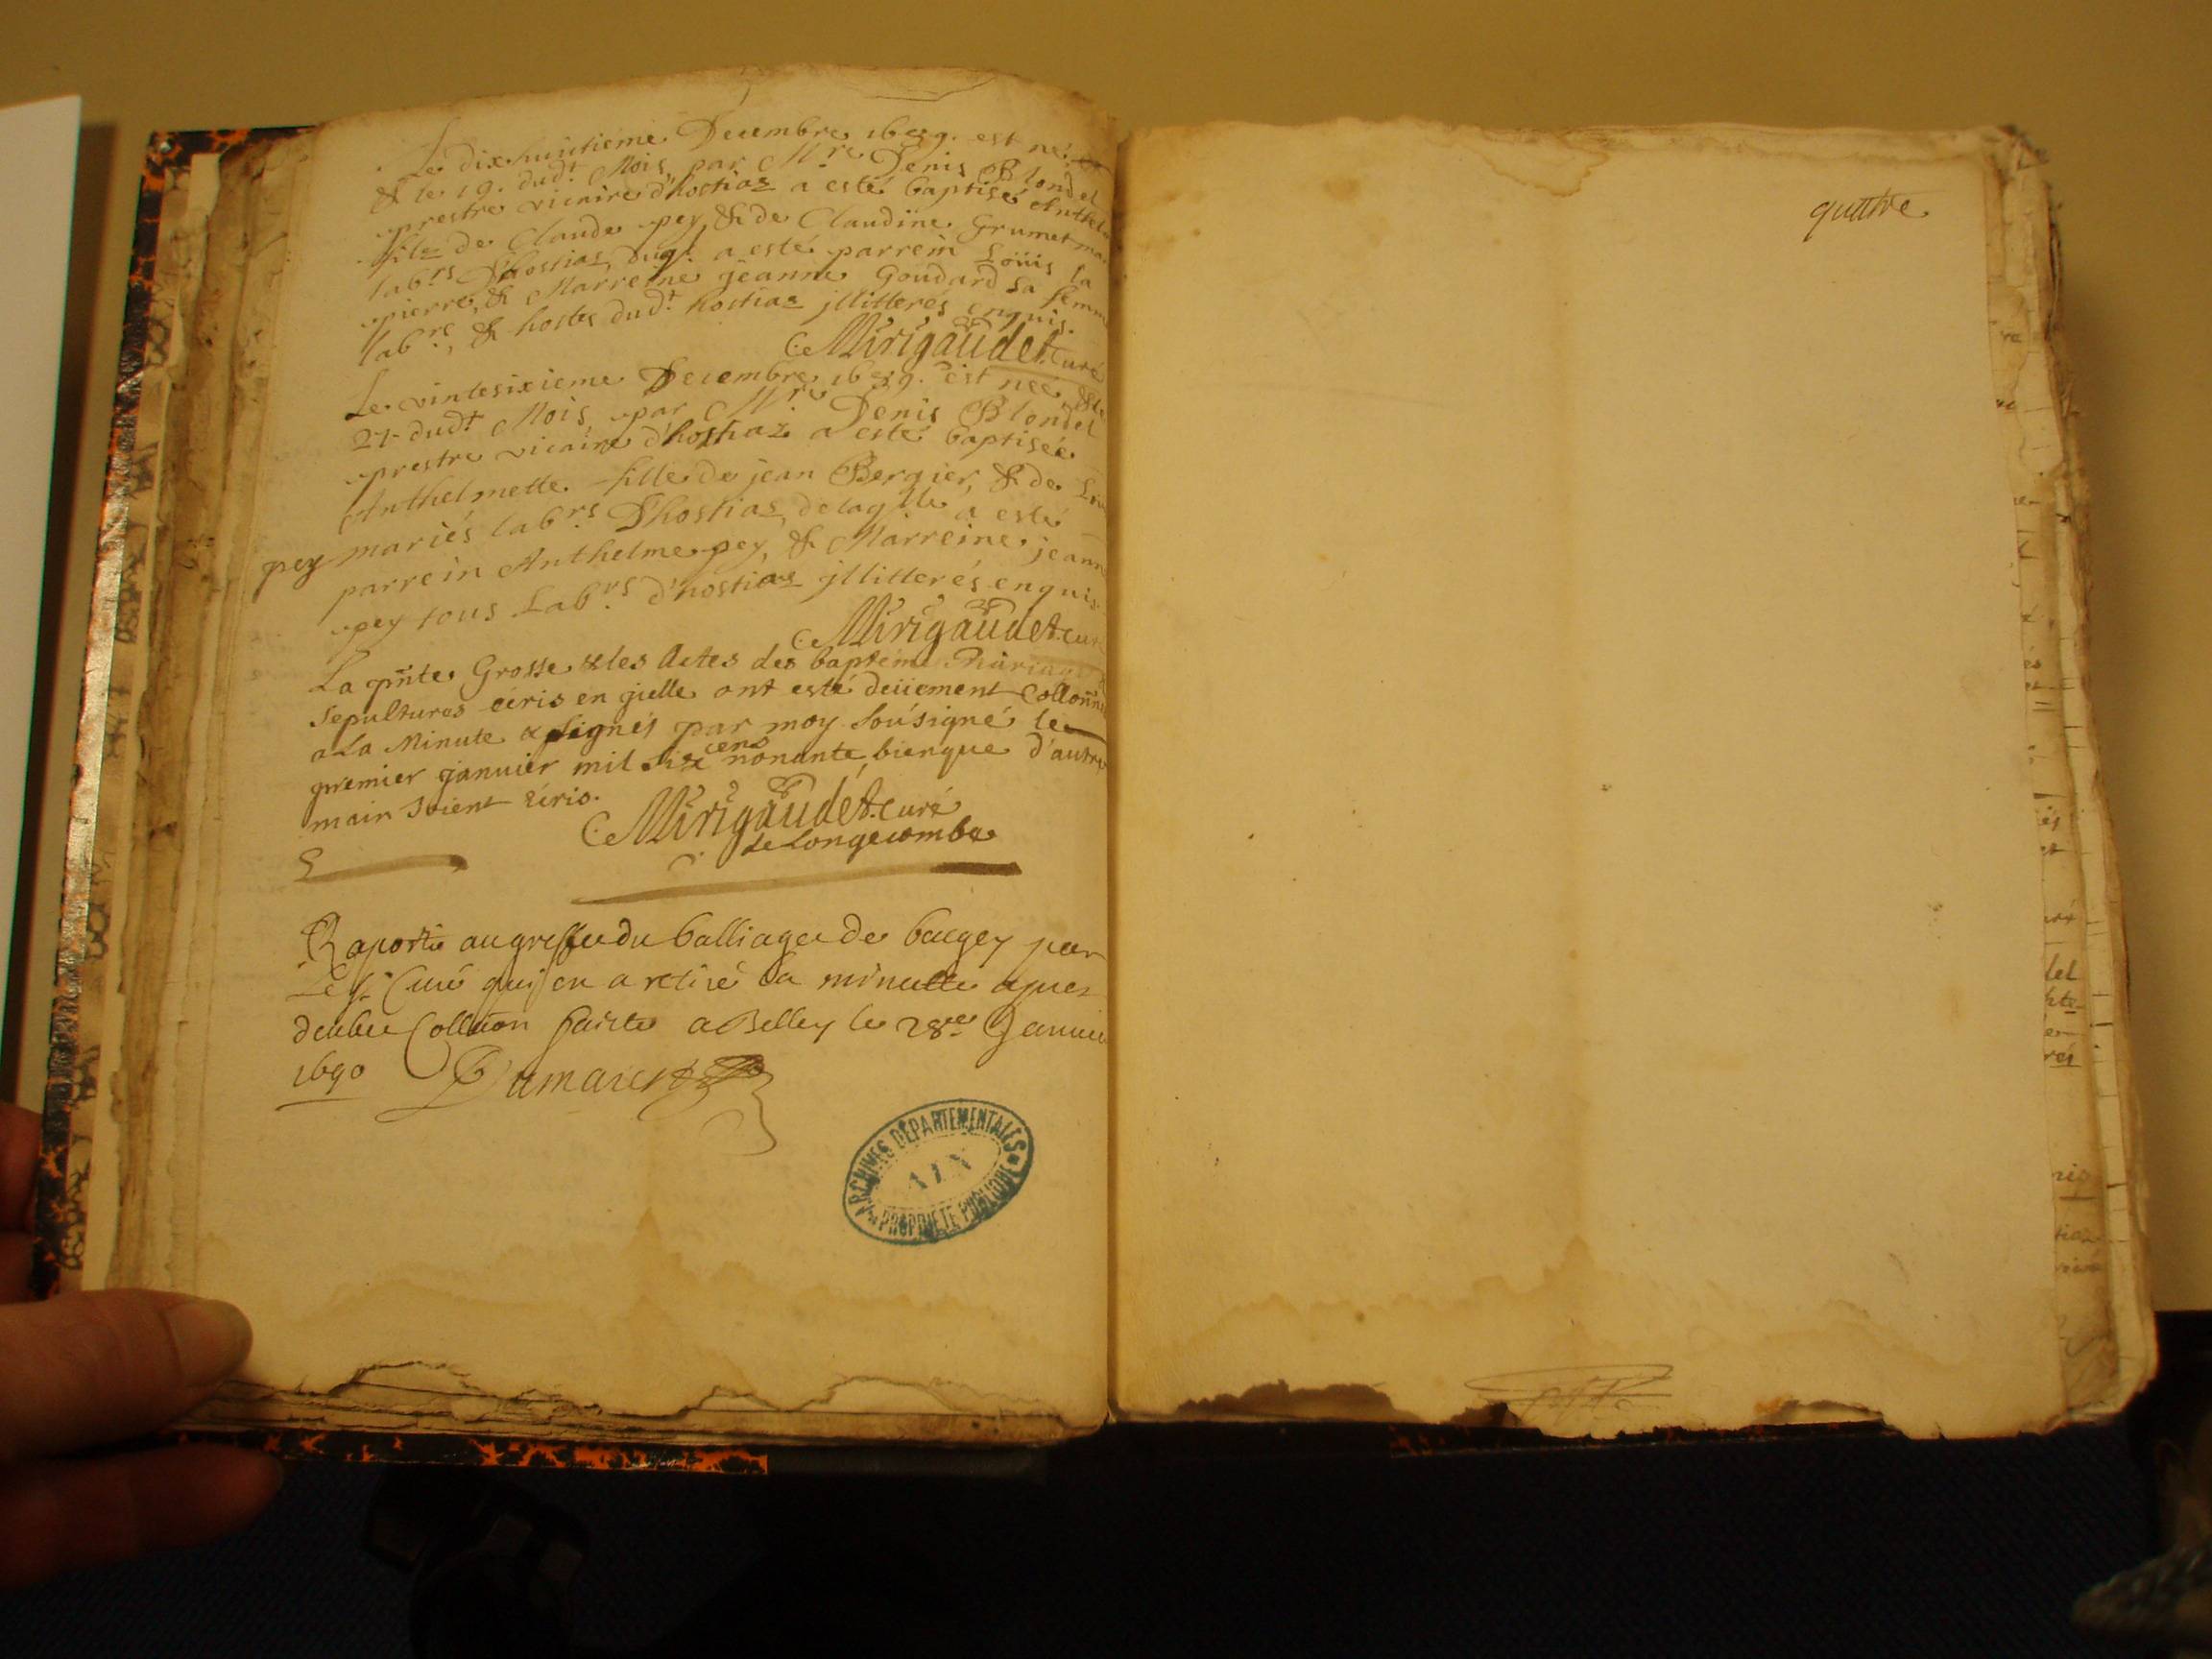 Le dixhuitiéme Decembre 1689. est né
& le 19. dud.t Mois, par M.re Denis Blondel
prestre vicaire d'hostiaz a esté baptisé Anthel
filz de Claude pey, & de Claudine Grumet
lab.rs D'hostiaz, duq.l a esté parrein Loüis la
pierre, & Marreine jeanne Goudard sa femme
lab.rs, & hostes dud.t hostiaz jllitterés enquis.
Mirigaudet Curé
Le vintesixieme Decembre 1689. est neé, & le
27. dud.t Mois, par M.re Denis Blondel
prestre vicaire d'hostiaz a esté baptiseé
Anthelmette fille de jean Bergier, & de
pey mariés lab.rs D'hostiaz, delaq.lle a esté
parrein Anthelme pey, & Marreine jeann
pey tous Lab.rs d'hostiaz jllitterés enquis
Mirigaudet Cur
La pñte Grosse & les Actes des baptéme Mariage
Sepultures écris en jcelle ont esté deüement Collonné
a La Minute & signés par moy sousigné le
premier januier mil six cens nonante, bienque d'autre
main soient écris.
Mirigaudet Curé
de Longecombe
Raporté au greffe du balliage de beugey par
Le sr Curé qui en a retiré la minutte apres
deube Collãon faicte a Belley le 28e Januie
1690 Dumarest
ARCHIVES DÉPARTEMENTALES
AIN
PROPRIÉTÉ PUBLIQUE
quattre